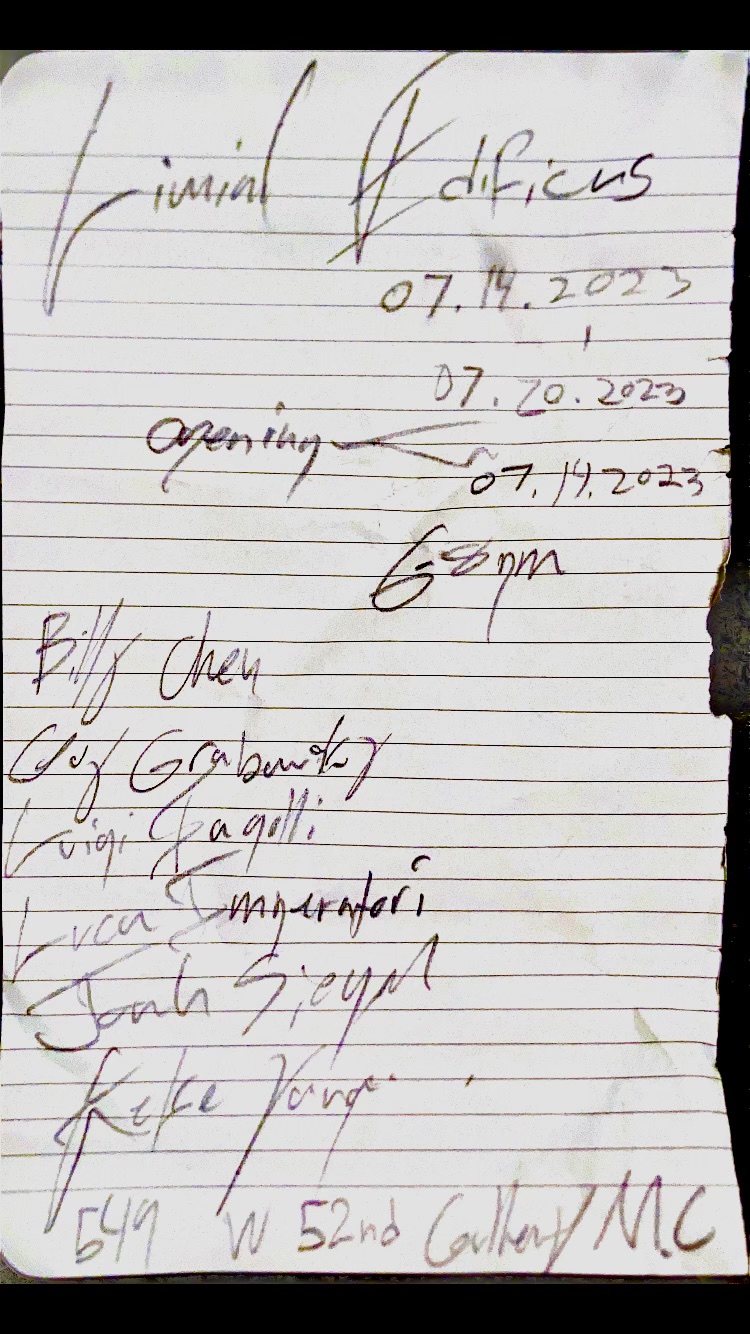 Liminal Edificus
07.14.2023
-
07.20.2023
opening
07.14.2023
6-8pm
Billy Chen
Guy Grabowsky
Luigi
Luca Imperatori
Jonah Siegel
Keke Yang
549 W 52nd Gallery M.C